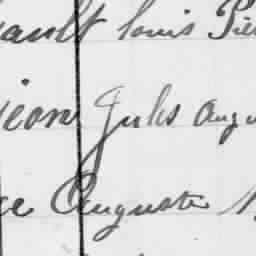 ault louis Pie
ieon Jules Augu
ce Auguste